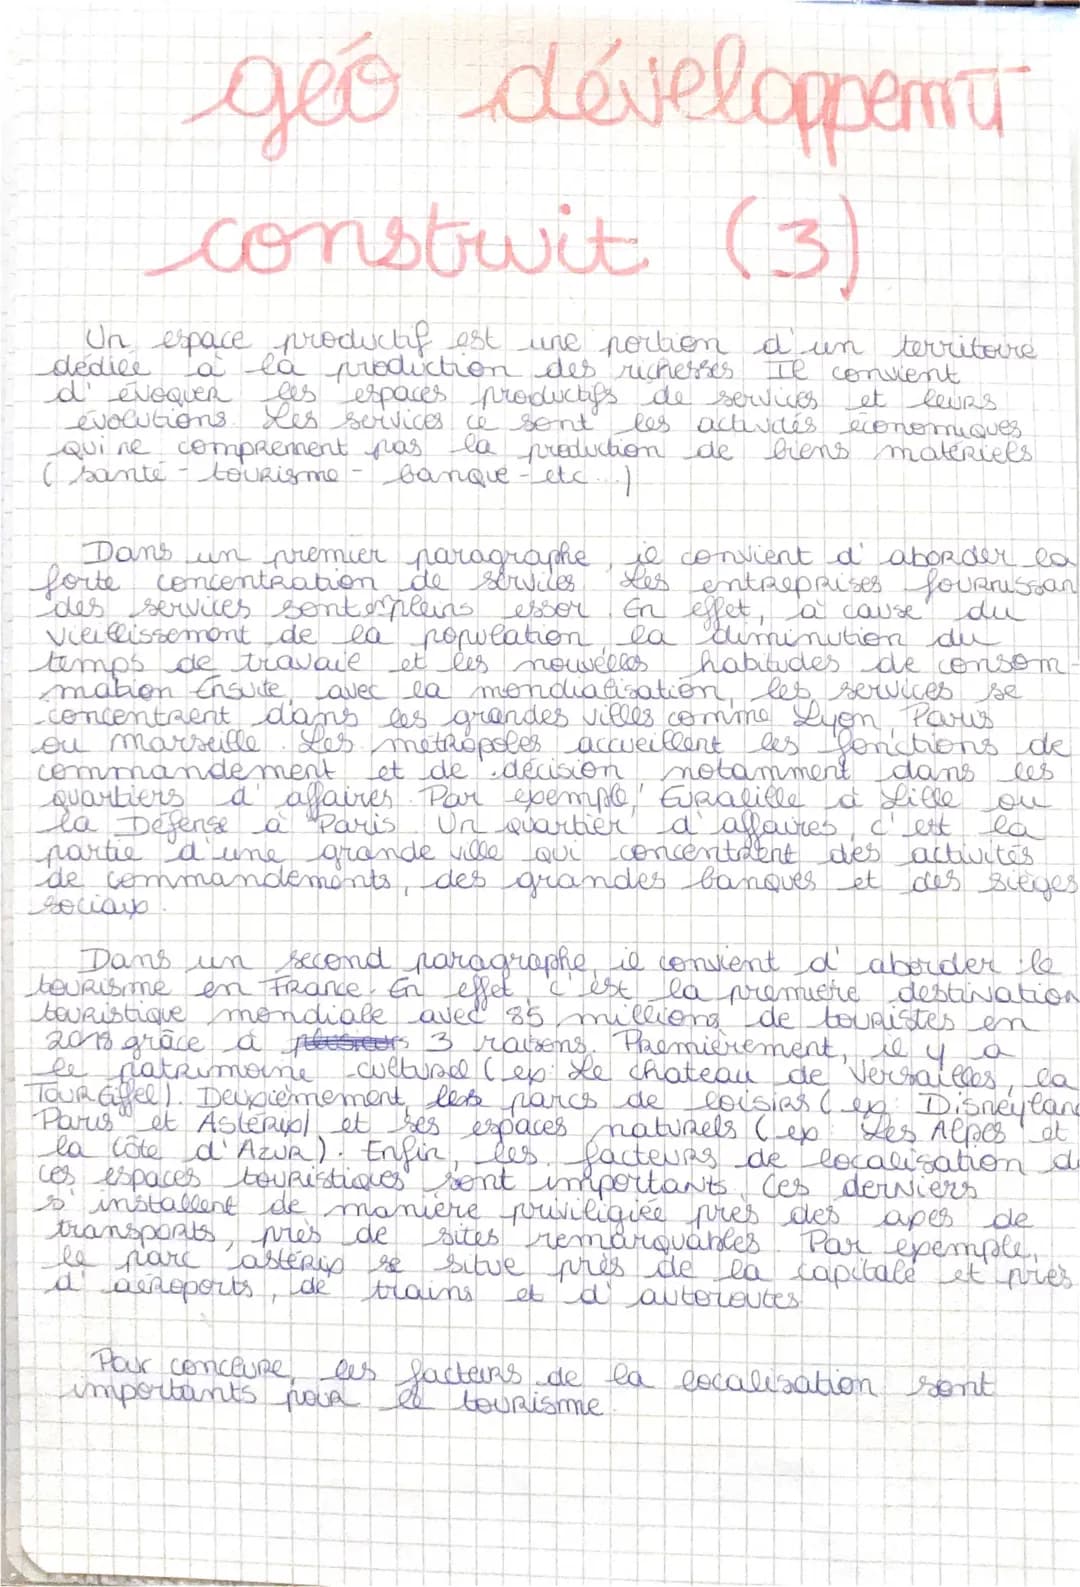 géo développemt
construit (3)
Un espace productif est une portion d'un territoire
dédiée à la production des richesses Il convient
d'évoquer les espaces productifs de services et leurs
évolutions. Les services ce sont les activités économiques
qui ne comprement pas la production de biens matériels
(santé - tourisme - banque - etc...)
Dans un premier paragraphe, il convient d'aborder la
forte concentration de services. Les entreprises fournissan
des services sont en pleins essor. En effet, à cause du
vieillissement de la population, la diminution du
temps de travail et les nouvelles habitudes de consom-
mation Ensuite, avec la mondialisation, les services se
concentrent dans les grandes villes comme Lyon, Paris
ou marseille. Les métropoles accueillent les fonctions de
commandement et de décision, notamment dans les
quartiers d'affaires. Par exemple, Euralille à Lille ou
la Défense à Paris. Un quartier d'affaires, c'est la
partie d'une grande ville qui concentrent des activités
de commandements, des grandes banques et des sièges
sociaux.
Dans un second paragraphe, il convient d'aborder le
tourisme en France. En effet, c'est la première destination
touristique mondiale avec 85 millions de touristes en
2018 grâce à plusieurs 3 raisons. Premièrement, il y a
le patrimoine culturel (ex: Le chateau de Versailles, la
Tour Eiffel). Deuxièmement, les parcs de loisirs (ex: Disneyland
Paris et Astérix) et ses espaces naturels (ex: Les Alpes et
la Côte d'Azur). Enfin, les facteurs de localisation de
ces espaces touristiques sont importants. Ces derniers
s'installent de manière priviligiée près des axes de
transports, près de sites remarquables. Par exemple,
le parc astérix se situe près de la capitale et près
d'aéroports, de trains et d'autoroutes.
Pour conclure, les facteurs de la localisation sont
importants pour le tourisme.